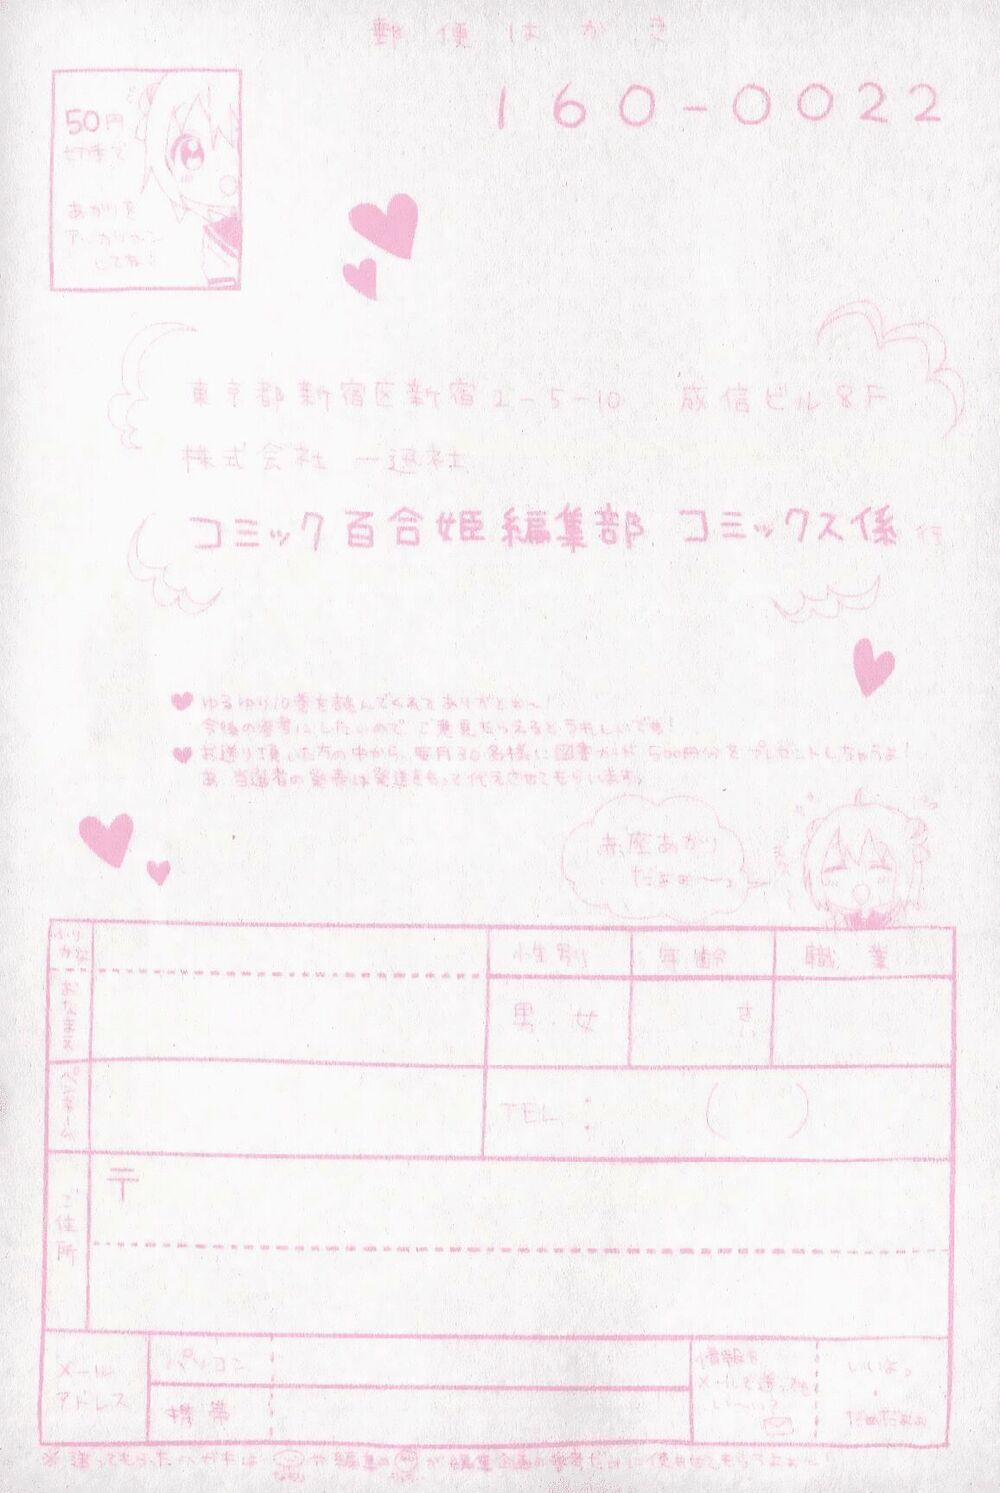 郵便はがき
160-0022
50円
切手で
あかりを
アッカリ〜ン
してね!
東京都新宿区新宿2-5-10 成信ビル8F
株式会社 一迅社
コミック百合姫編集部 コミックス係 行
ゆるゆり10巻を読んでくれてありがとぉ〜!
今後の参考にしたいので、ご意見もらえるとうれしいです!
お送り頂いた方の中から、毎月30名様に図書カード500円分をプレゼントしちゃうよ!
あ、当選者の発表は発送をもって代えさせてもらいます。
赤座あかり
だよぉ〜っ
ふりがな
性別 年齢 職業
おなまえ
男・女 さい
ペンネーム
TEL: ( )
〒
ご住所
メールアドレス
パソコン
携帯
情報を
メールで送っても
い〜い?
いいよ。
・
だめだよぉ
※送ってもらったハガキは や編集の が編集企画の参考だけに使わせてもらうよぉ〜!